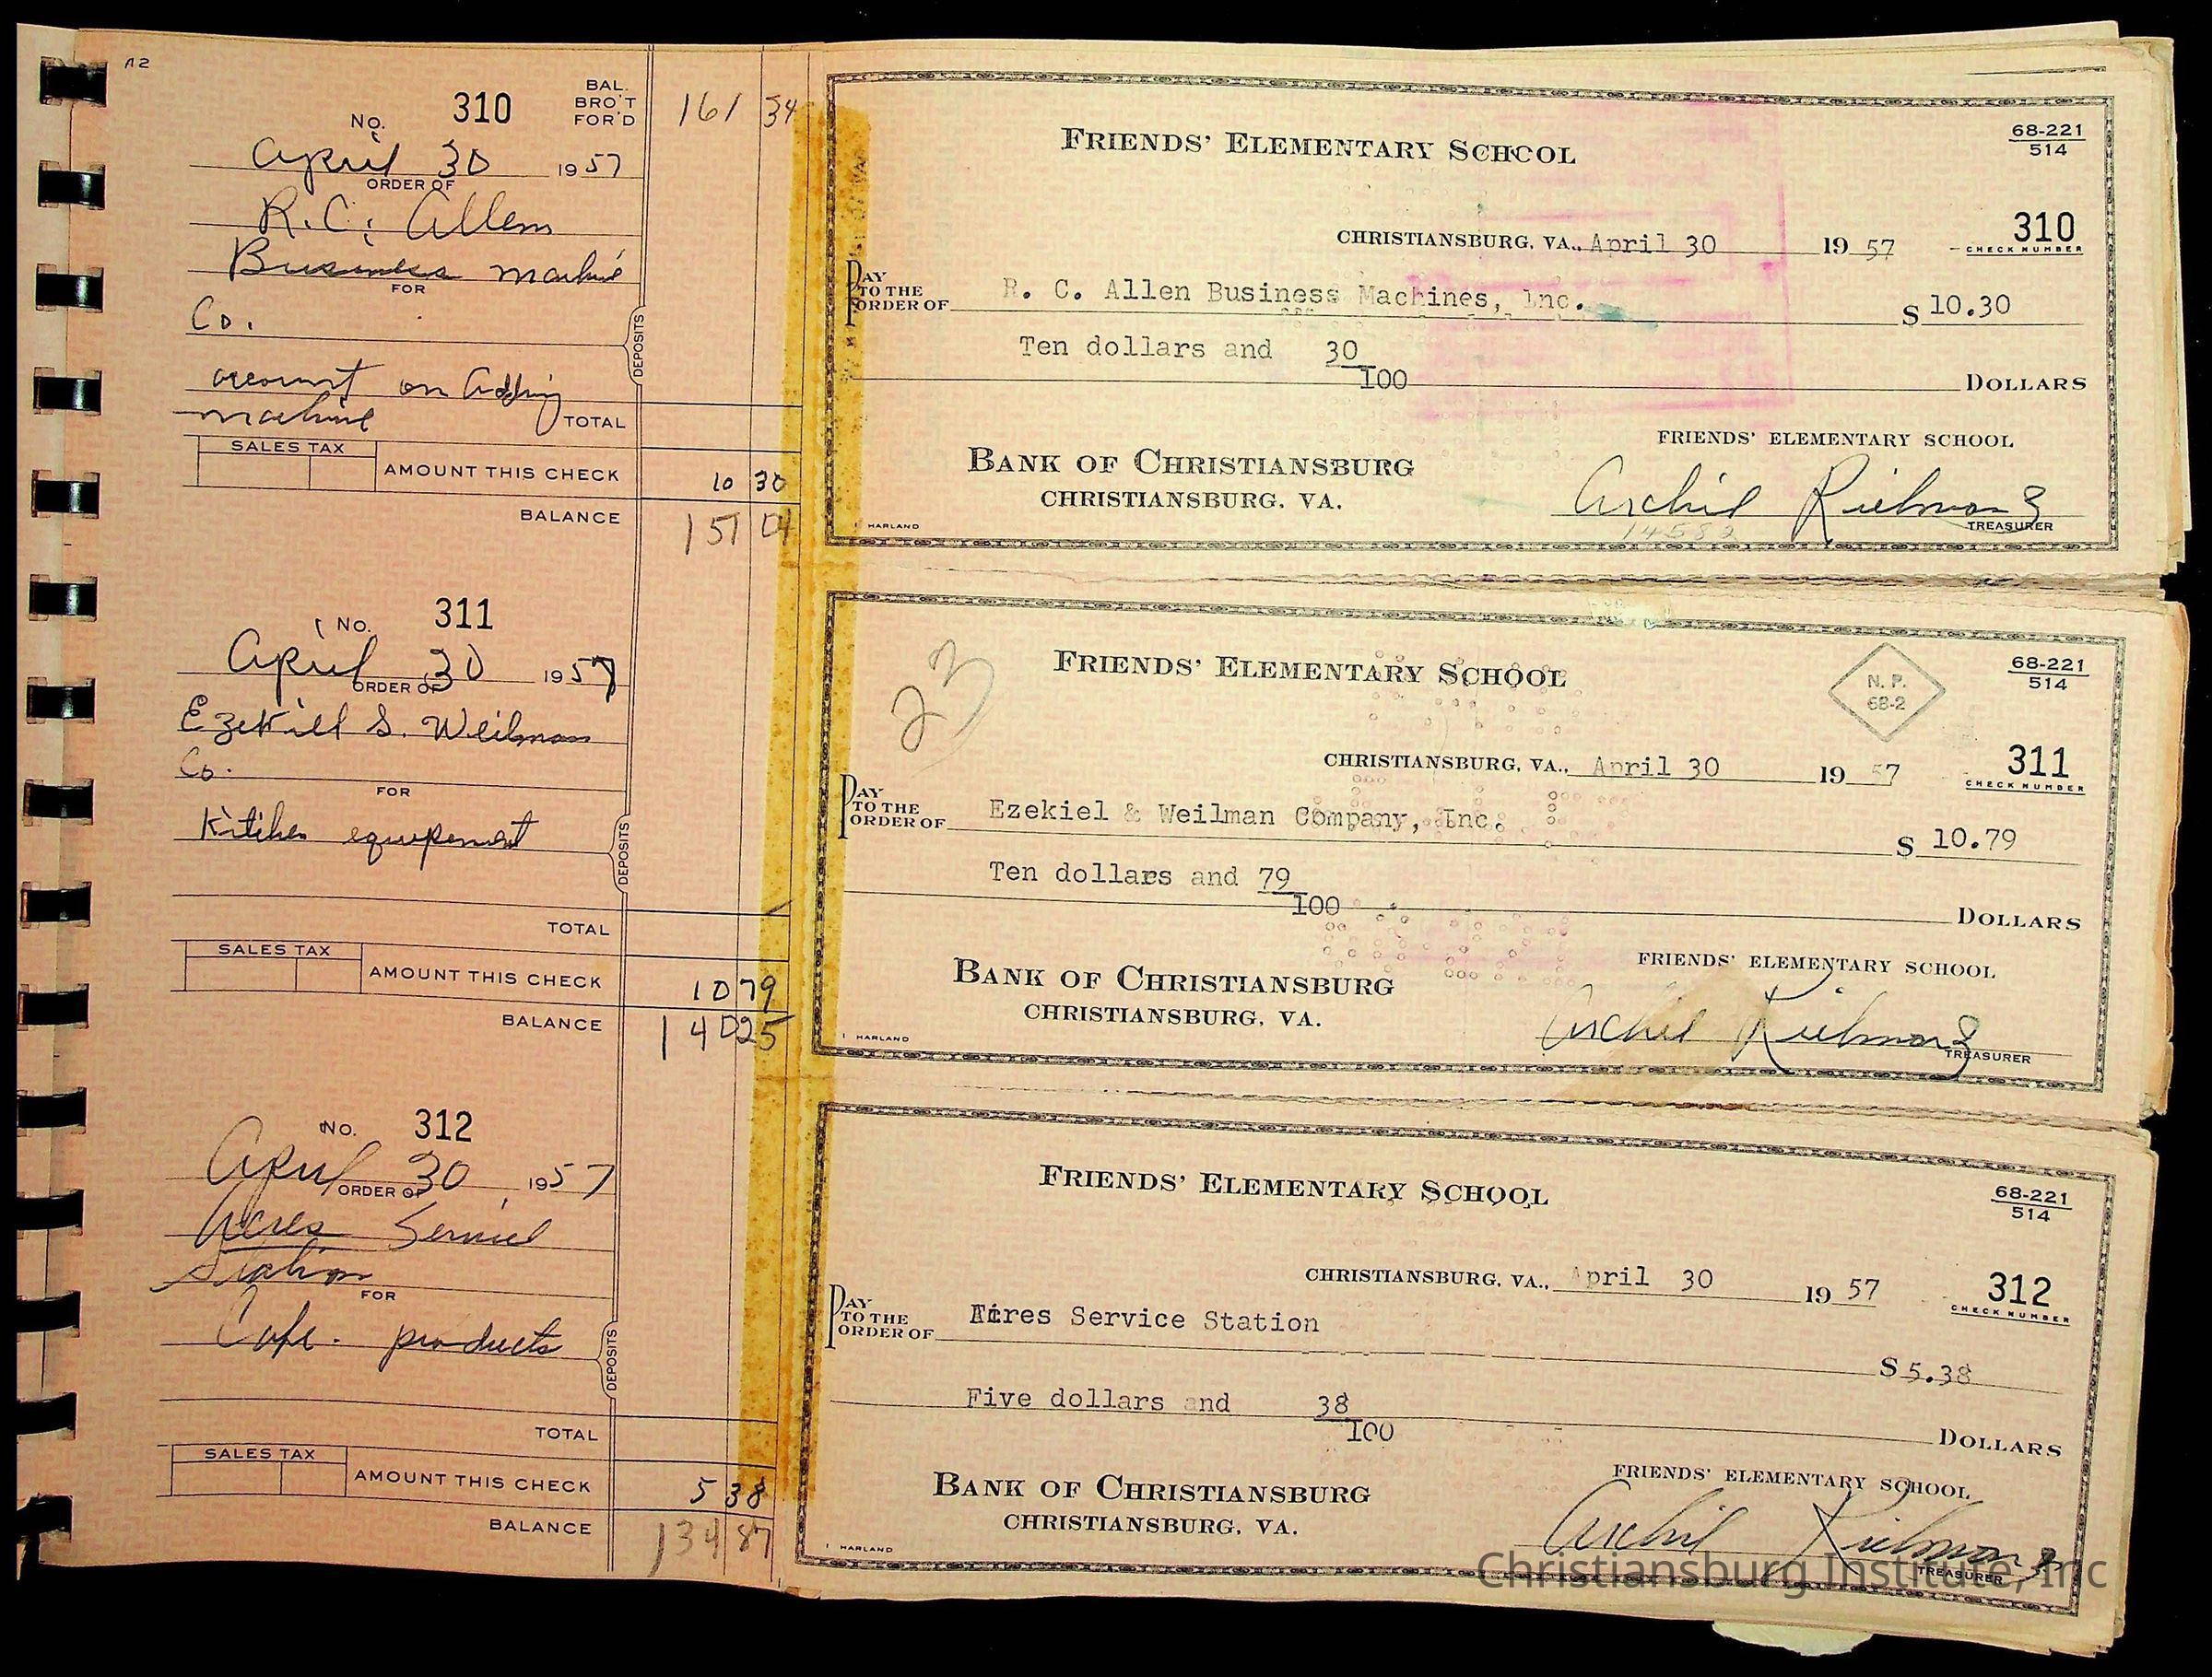 A2
No. 310
BAL. BRO'T FOR'D 161 34
April 30 1957
ORDER OF
R.C. Allen
Business machine
FOR
Co.
DEPOSITS
account on adding
machine
TOTAL
SALES TAX
AMOUNT THIS CHECK 10 30
BALANCE 151 04
FRIENDS' ELEMENTARY SCHOOL
68-221
514
CHRISTIANSBURG, VA., April 30 19 57
310
CHECK NUMBER
PAY TO THE ORDER OF R. C. Allen Business Machines, Inc. $ 10.30
Ten dollars and 30
100 DOLLARS
FRIENDS' ELEMENTARY SCHOOL
BANK OF CHRISTIANSBURG
CHRISTIANSBURG, VA.
Archie Richmond
TREASURER
14582
HARLAND
No. 311
April 30 1957
ORDER OF
Ezekiel S. Weilman
Co.
FOR
Kitchen equipement
DEPOSITS
TOTAL
SALES TAX
AMOUNT THIS CHECK 10 79
BALANCE 140 25
23
FRIENDS' ELEMENTARY SCHOOL
N. P.
68-2
68-221
514
CHRISTIANSBURG, VA., April 30 19 57
311
CHECK NUMBER
PAY TO THE ORDER OF Ezekiel & Weilman Company, Inc. $ 10.79
Ten dollars and 79
100 DOLLARS
FRIENDS' ELEMENTARY SCHOOL
BANK OF CHRISTIANSBURG
CHRISTIANSBURG, VA.
Archie Richmond
TREASURER
HARLAND
No. 312
April 30 1957
ORDER OF
Acres Service
Station
FOR
Cafe. products
DEPOSITS
TOTAL
SALES TAX
AMOUNT THIS CHECK 5 38
BALANCE 134 87
FRIENDS' ELEMENTARY SCHOOL
68-221
514
CHRISTIANSBURG, VA., April 30 19 57
312
CHECK NUMBER
PAY TO THE ORDER OF Acres Service Station
$ 5.38
Five dollars and 38
100 DOLLARS
FRIENDS' ELEMENTARY SCHOOL
BANK OF CHRISTIANSBURG
CHRISTIANSBURG, VA.
Archie Richmond
TREASURER
HARLAND
Christiansburg Institute, Inc